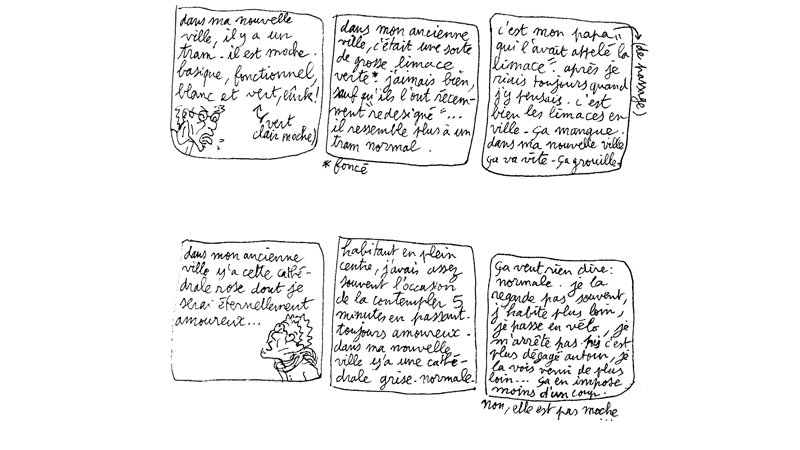 dans ma nouvelle
ville, il y a un
tram. il est moche.
basique, fonctionnel,
blanc et vert, eurk!
(vert
clair moche)
dans mon ancienne
ville, c'était une sorte
de grosse limace
verte* j'aimais bien,
sauf qu'ils l'ont récem-
ment "redesigné"...
il ressemble plus à un
tram normal.
* foncé
c'est mon papa
qui l'avait appelé "la
limace". après je
(de passage)
riais toujours quand
j'y pensais. c'est
bien les limaces en
ville - ça manque.
dans ma nouvelle ville
ça va vite - ça grouille.
dans mon ancienne
ville y'a cette cathé-
drale rose dont je
serai éternellement
amoureux...
habitant en plein
centre, j'avais assez
souvent l'occasion
de la contempler 5
minutes en passant.
toujours amoureux.
dans ma nouvelle
ville y'a une cathé-
drale grise. normale.
ça veut rien dire:
normale. je la
regarde pas souvent,
j'habite plus loin,
je passe en vélo, je
m'arrête pas puis c'est
plus dégagé autour, je
la vois venir de plus
loin... ça en impose
moins d'un coup.
non, elle est pas moche
...